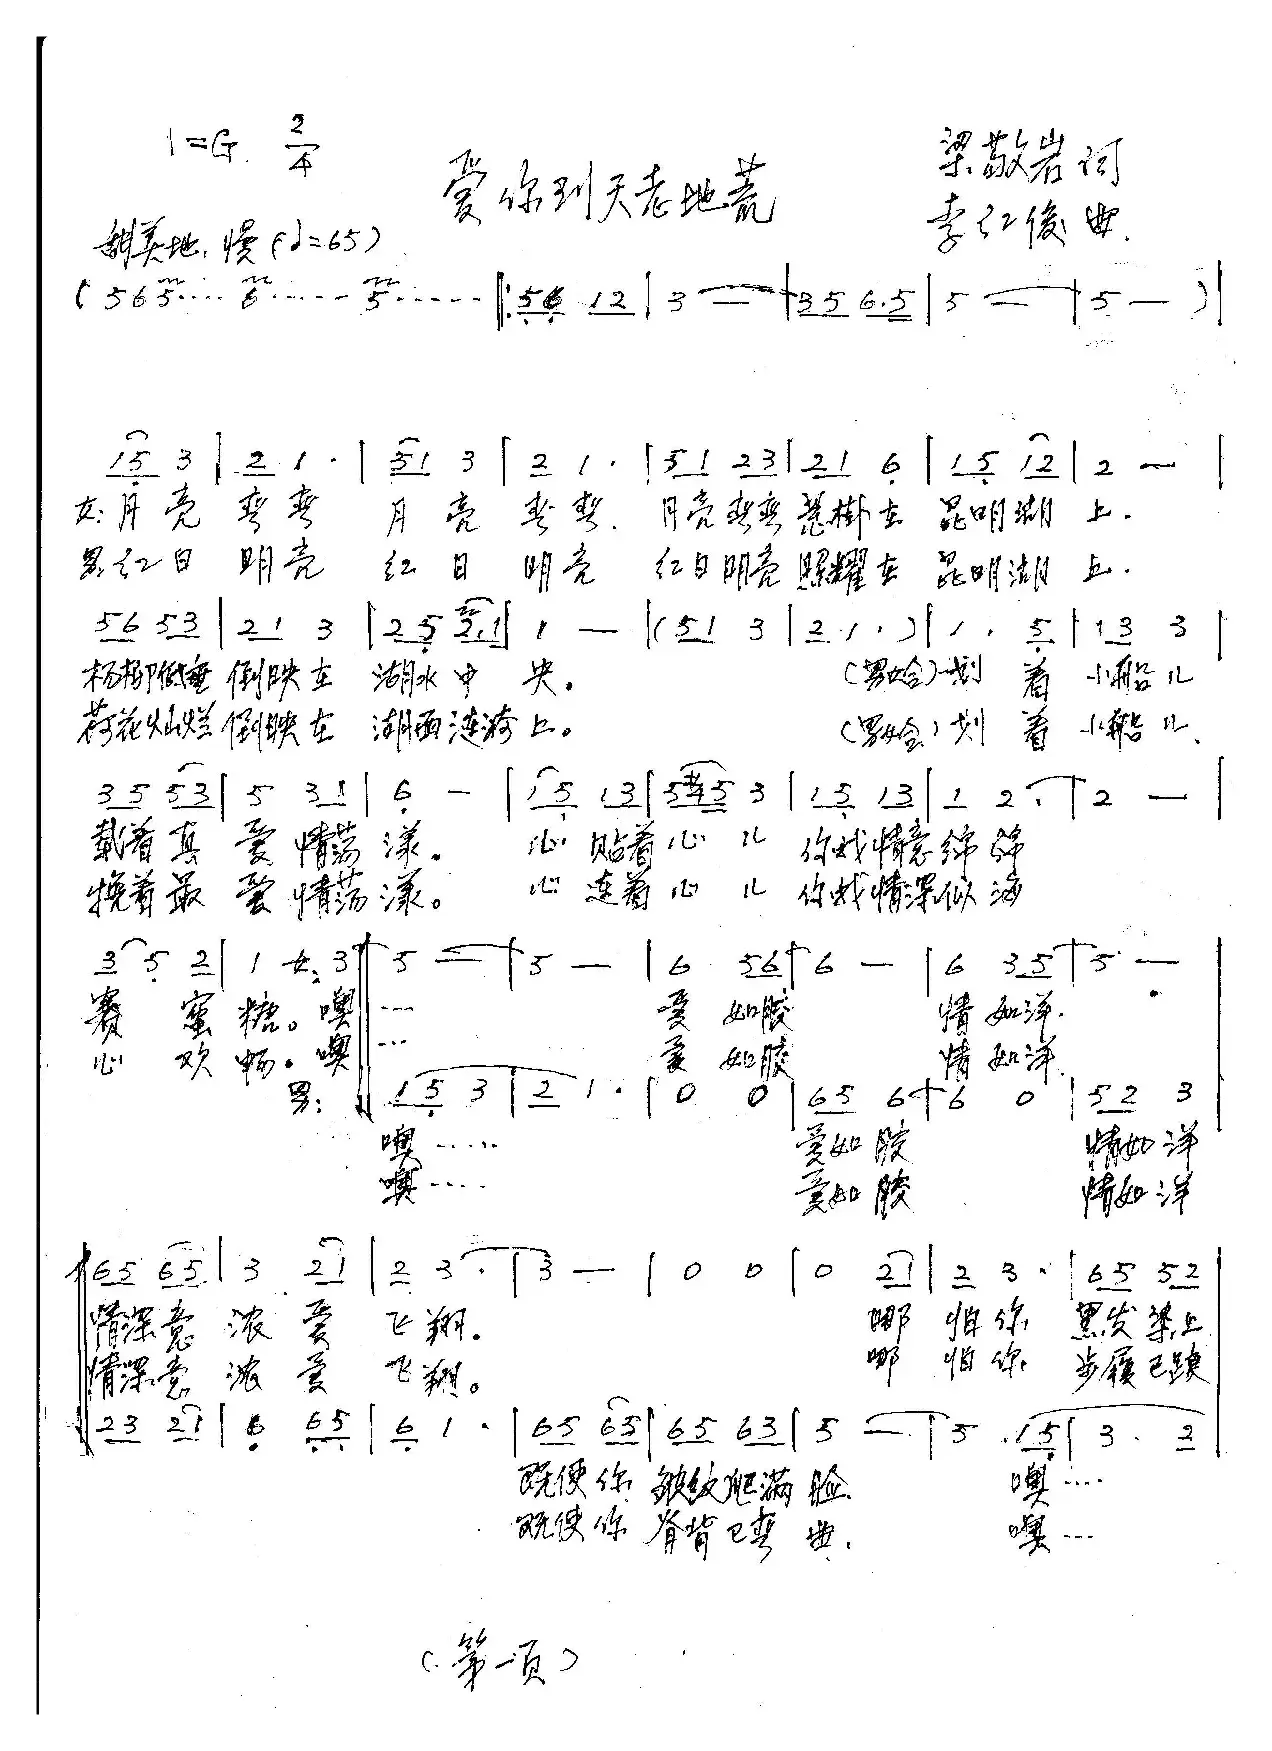 1=G 2/4
爱你到天老地荒
梁敬岩词
李红俊曲.
甜美地.慢(♩=65)
(565···· 6······ 5······ ‖: 56 12 | 3 — | 35 6.5 | 5 — | 5 — ) |
15 3 | 2 1 · | 51 3 | 2 1 · | 51 23 | 21 6 | 15 12 | 2 — |
女:月亮 弯弯 月亮 弯弯. 月亮弯弯 挂在 昆明湖上.
男:红日 明亮 红日 明亮 红日明亮照耀在 昆明湖上.
56 53 | 21 3 | 25 2.1 | 1 — | (51 3 | 2 1 · ) | 1 · 5 | 13 3 |
杨柳低垂 倒映在 湖水中央。 (男女合)划 着 小船儿
荷花灿烂 倒映在 湖面涟漪上。 (男女合)划 着 小船儿、
35 53 | 5 31 | 6 — | 15 13 | 545 3 | 15 13 | 1 2 · | 2 — |
载着真 爱 情荡漾。 心 贴着心儿 你我情意绵绵
挽着最 爱 情荡漾。 心 连着心儿 你我情深似海
3 5 2 | 1 女:3 ‖ 5 — | 5 — | 6 56 | 6 — | 6 35 | 5 — |
赛 蜜 糖。噢 ··· 爱 如胶 情 如洋.
心 欢 畅。噢 ··· 爱 如胶 情 如洋.
男: ‖ 15 3 | 2 1 · | 0 0 | 65 6 | 6 0 | 52 3
噢····· 爱如胶 情如洋
噢···· 爱如胶 情如洋
65 65 | 3 21 | 2 3 · | 3 — | 0 0 | 0 21 | 2 3 · | 65 52
情深意 浓 爱 飞翔。 哪 怕你 黑发染上
情深意 浓 爱 飞翔。 哪 怕你 步履已踉
23 21 | 6 65 | 6 1 · | 65 65 | 65 63 | 5 — | 5 · 15 | 3 · 2 |
既使你 皱纹爬满脸. 噢····
既使你 脊背已弯曲. 噢···
(第一页)